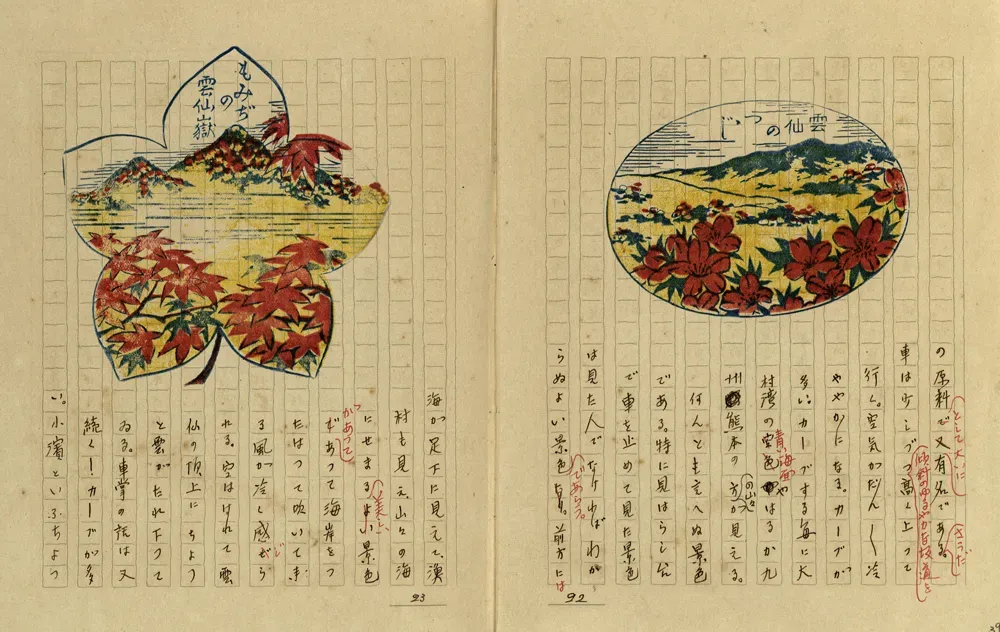 雲仙のつゝじ
の原料で又有名である。
として大いに
さうだ
車は少しづつ高く上つて
傾斜のゆるやかな坂道を
行く。空気がだん〳〵冷
ややかになる。カーブが
多い。カーブする毎に大
村湾の空色やはるか九
青い海面や
州熊本の方が見える。
の山々
何んとも言へぬ景色
である。特に見はらし台
で車を止めて見た景色
は見た人でなければわか
らぬよい景色 前方には
であらう。
92
もみぢ
の
雲仙嶽
海が足下に見えて、漁
村も見え、山々の海
にせまるよい景色
美しい
であつて海岸をつ
かあつて
たはつて吹いて来
る風が冷く感ぜら
じ
れる。空ははれて雲
仙の頂上にちよつ
と雲がたれ下つて
ゐる。車掌の話は又
続く!カーブが多
い。小濱といふちよつ
23